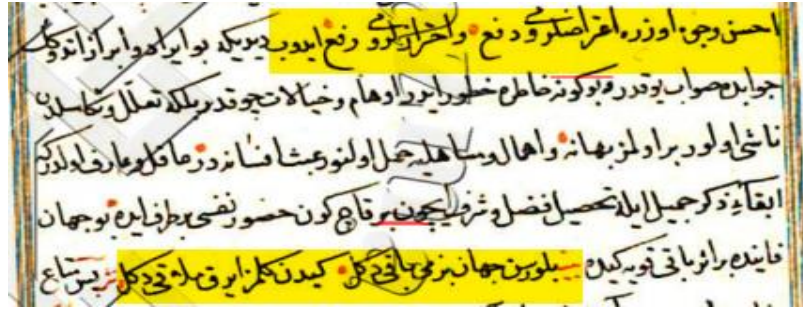 احسن وجه اوزره اغراضلرى و دفع و احترازلرى رفع ايدوب ديديكه بو ايراد و ابراز اتدوكك
جوابده صواب يوقدر و بو كونه خاطره خطور ايدر اوهام و خيالات چوقدر بلكه تعلل و تكاسلدن
ناشى اولور بر اولمز بهانه و اهمال و مساهليه حمل اولنور عبث افسانه در عاقل و عارف اولدر كه
ابقاء ذكر جميل ايله تحصيل فضل و شرف ايچون بر قاچ كون حضور نفسى بر طرف ايده بو جهان
فانيده بر اثر باقى قويه كيده بيلورسن جهان بزمى باقى دكل كيدن كلمز ايرق ملاقى دكل پس متاع